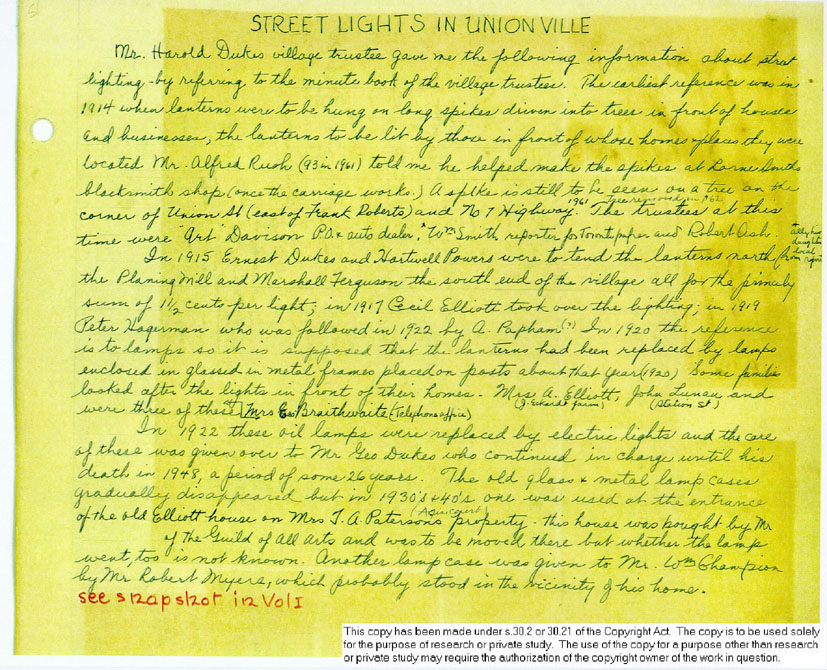 STREET LIGHTS IN UNIONVILLE
Mr. Harold Dukes village trustee gave me the following information about street
lighting - by referring to the minute book of the village trustees. The earliest reference was in
1914 when lanterns were to be hung on long spikes driven into trees in front of houses
and businesses, the lanterns to be lit by those in front of whose homes or places they were
located Mr. Alfred Rush (93 in 1961) told me he helped make the spikes at Lorne Smith's
blacksmith shop (once the carriage works.) A spike is still to be seen on a tree on the
1961 Tree removed in 1962
corner of Union St (east of Frank Roberts) and No 7 Highway. The trustees at this
time were "Art" Davison P.O. & auto dealer, * Wm Smith reporter for Toronto paper and Robert Ash.
In 1915 Ernest Dukes and Hartwell Powers were to tend the lanterns north from
the Planing Mill and Marshall Ferguson the south end of the village all for the princely
sum of 1 1/2 cents per light; in 1917 Cecil Elliott took over the lighting; in 1919
Peter Hagerman who was followed in 1922 by A. Papham (?) In 1920 the reference
is to lamps so it is supposed that the lanterns had been replaced by lamps
enclosed in glassed in metal frames placed on posts about that year (1920) Some families
looked after the lights in front of their homes - Mrs A. Elliott, John Lunau and
(J. Eckardt farm) (Station St)
were three of these Mrs Braithwaite (Telephone office)
In 1922 these oil lamps were replaced by electric lights and the care
of these was given over to Mr Geo Dukes who continued in charge until his
death in 1948, a period of some 26 years. The old glass & metal lamp cases
gradually disappeared but in 1930's & 40's one was used at the entrance
of the old Elliott house on Mrs T. A. Paterson's property - this house was bought by Mr
of the Guild of all Arts and was to be moved there but whether the lamp
went, too is not known. Another lamp case was given to Mr. Wm Champion
by Mr Robert Myers, which probably stood in the vicinity of his home.
see snapshot in Vol I
This copy has been made under s.30.2 or 30.21 of the Copyright Act. The copy is to be used solely
for the purpose of research or private study. The use of the copy for a purpose other than research
or private study may require the authorization of the copyright owner of the work in question.